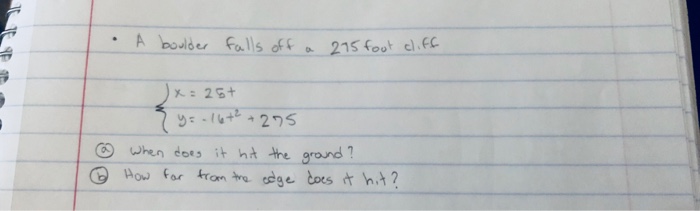 • A boulder falls off a 275 foot cliff
x = 25t
y = -16t² + 275
(a) When does it hit the ground?
(b) How far from the edge does it hit?